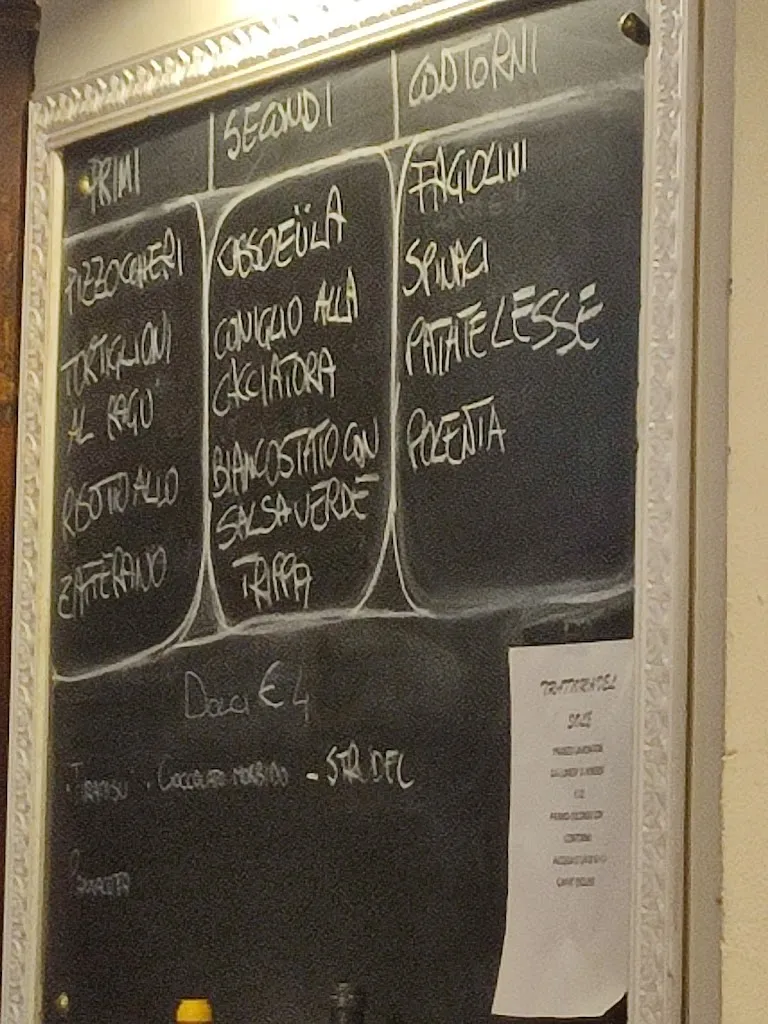 PRIMI
SECONDI
CONTORNI
PIZZOCCHERI
TORTIGLIONI
AL RAGU'
RISOTTO ALLO
ZAFFERANO
CASSOEÜLA
CONIGLIO ALLA
CACCIATORA
BIANCOSTATO CON
SALSA VERDE
TRIPPA
FAGIOLINI
SPINACI
PATATE LESSE
POLENTA
Dolci € 4
TIRAMISU' - CIOCCOLATO MORBIDO - STRUDEL
TRATTORIA DEL
SOLE